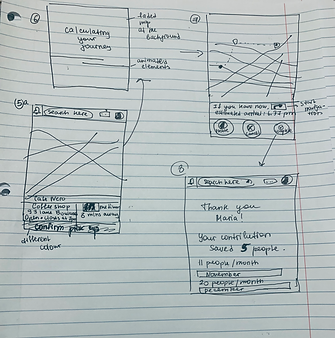 6
Calculating
your
journey
faded
map
at the
background
animated
elements
If you leave now,
estimated arrival: 6:77 pm
start
5a
Search here
Cafe Nero
Coffee shop
6 mins away
confirm
different
colour
8
Search here
Thank you
Maria!
Your contribution
saved 5 people.
11 people/month
November
20 people/month
December